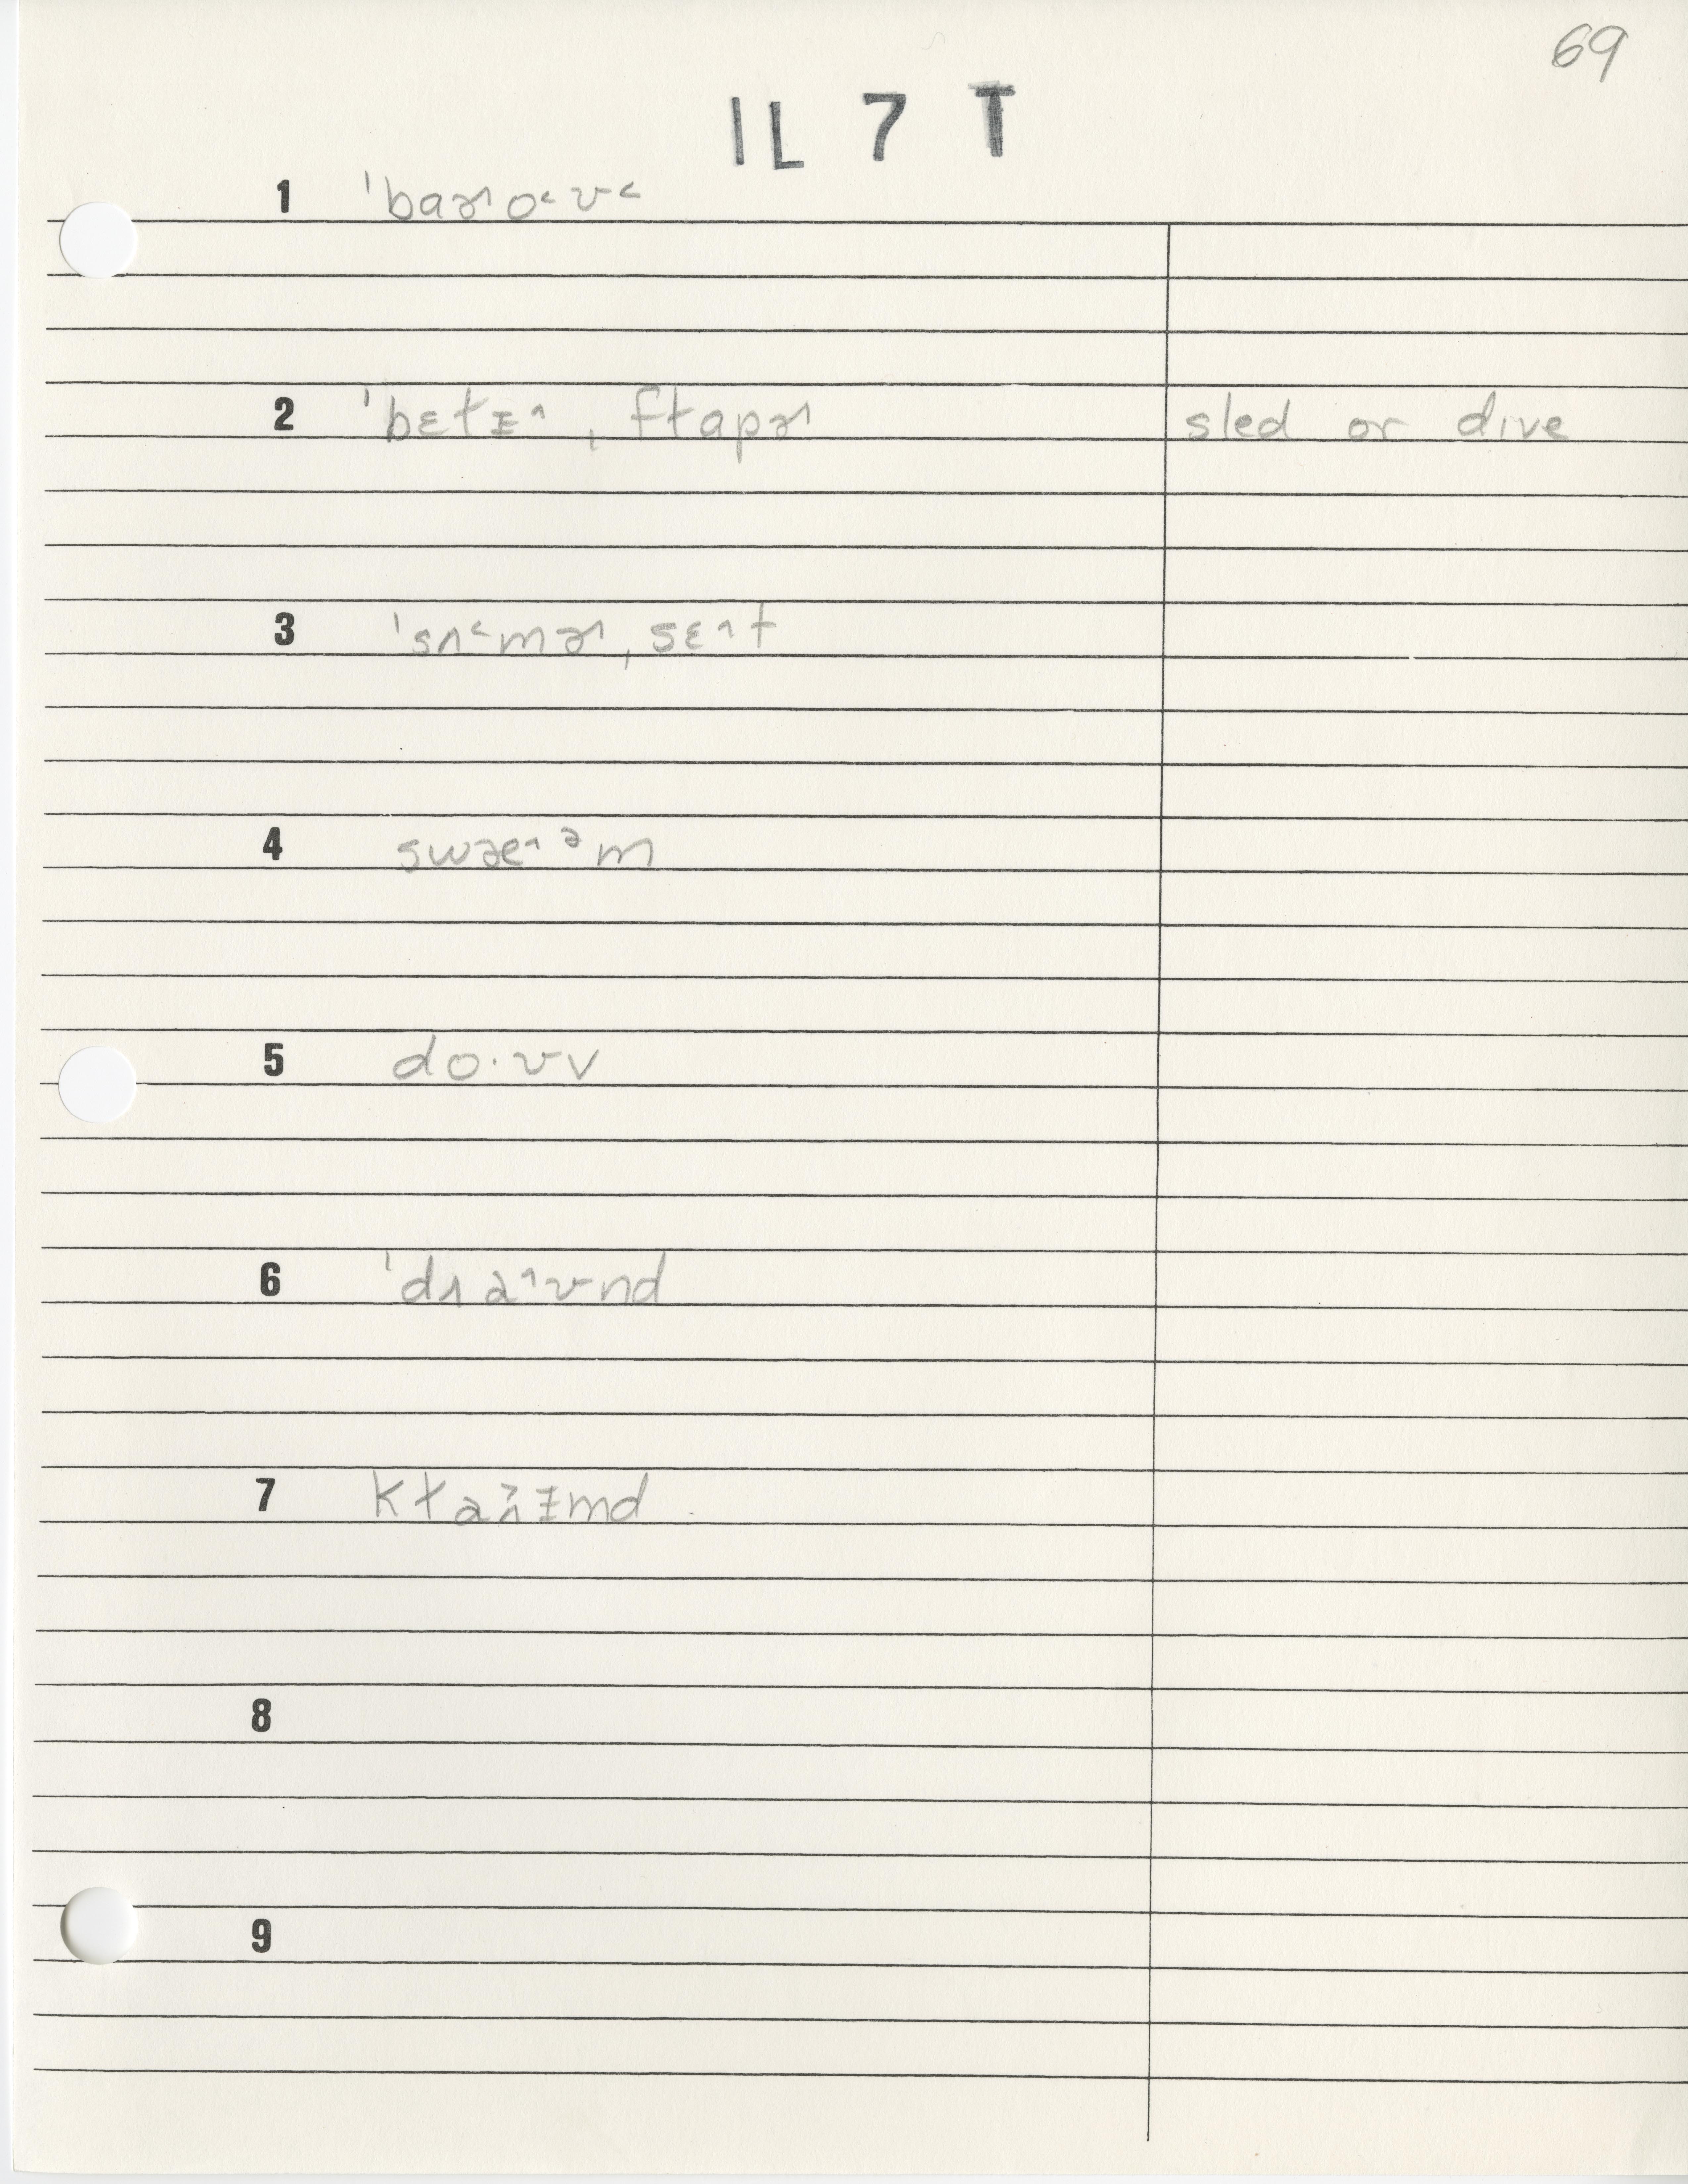 69
1L 7 T
1 ˈbaɚ˄ o˂ʊ˂
2 ˈbɛɫɪ̵˄, fɫapɚ sled or dive
3 ˈsʌ˂mɚ, sɛ˄t
4 swæ˄ᵊm
5 do·ʊv
6 ˈdɹa˄ʊnd
7 kɫaɪ̵md
8
9